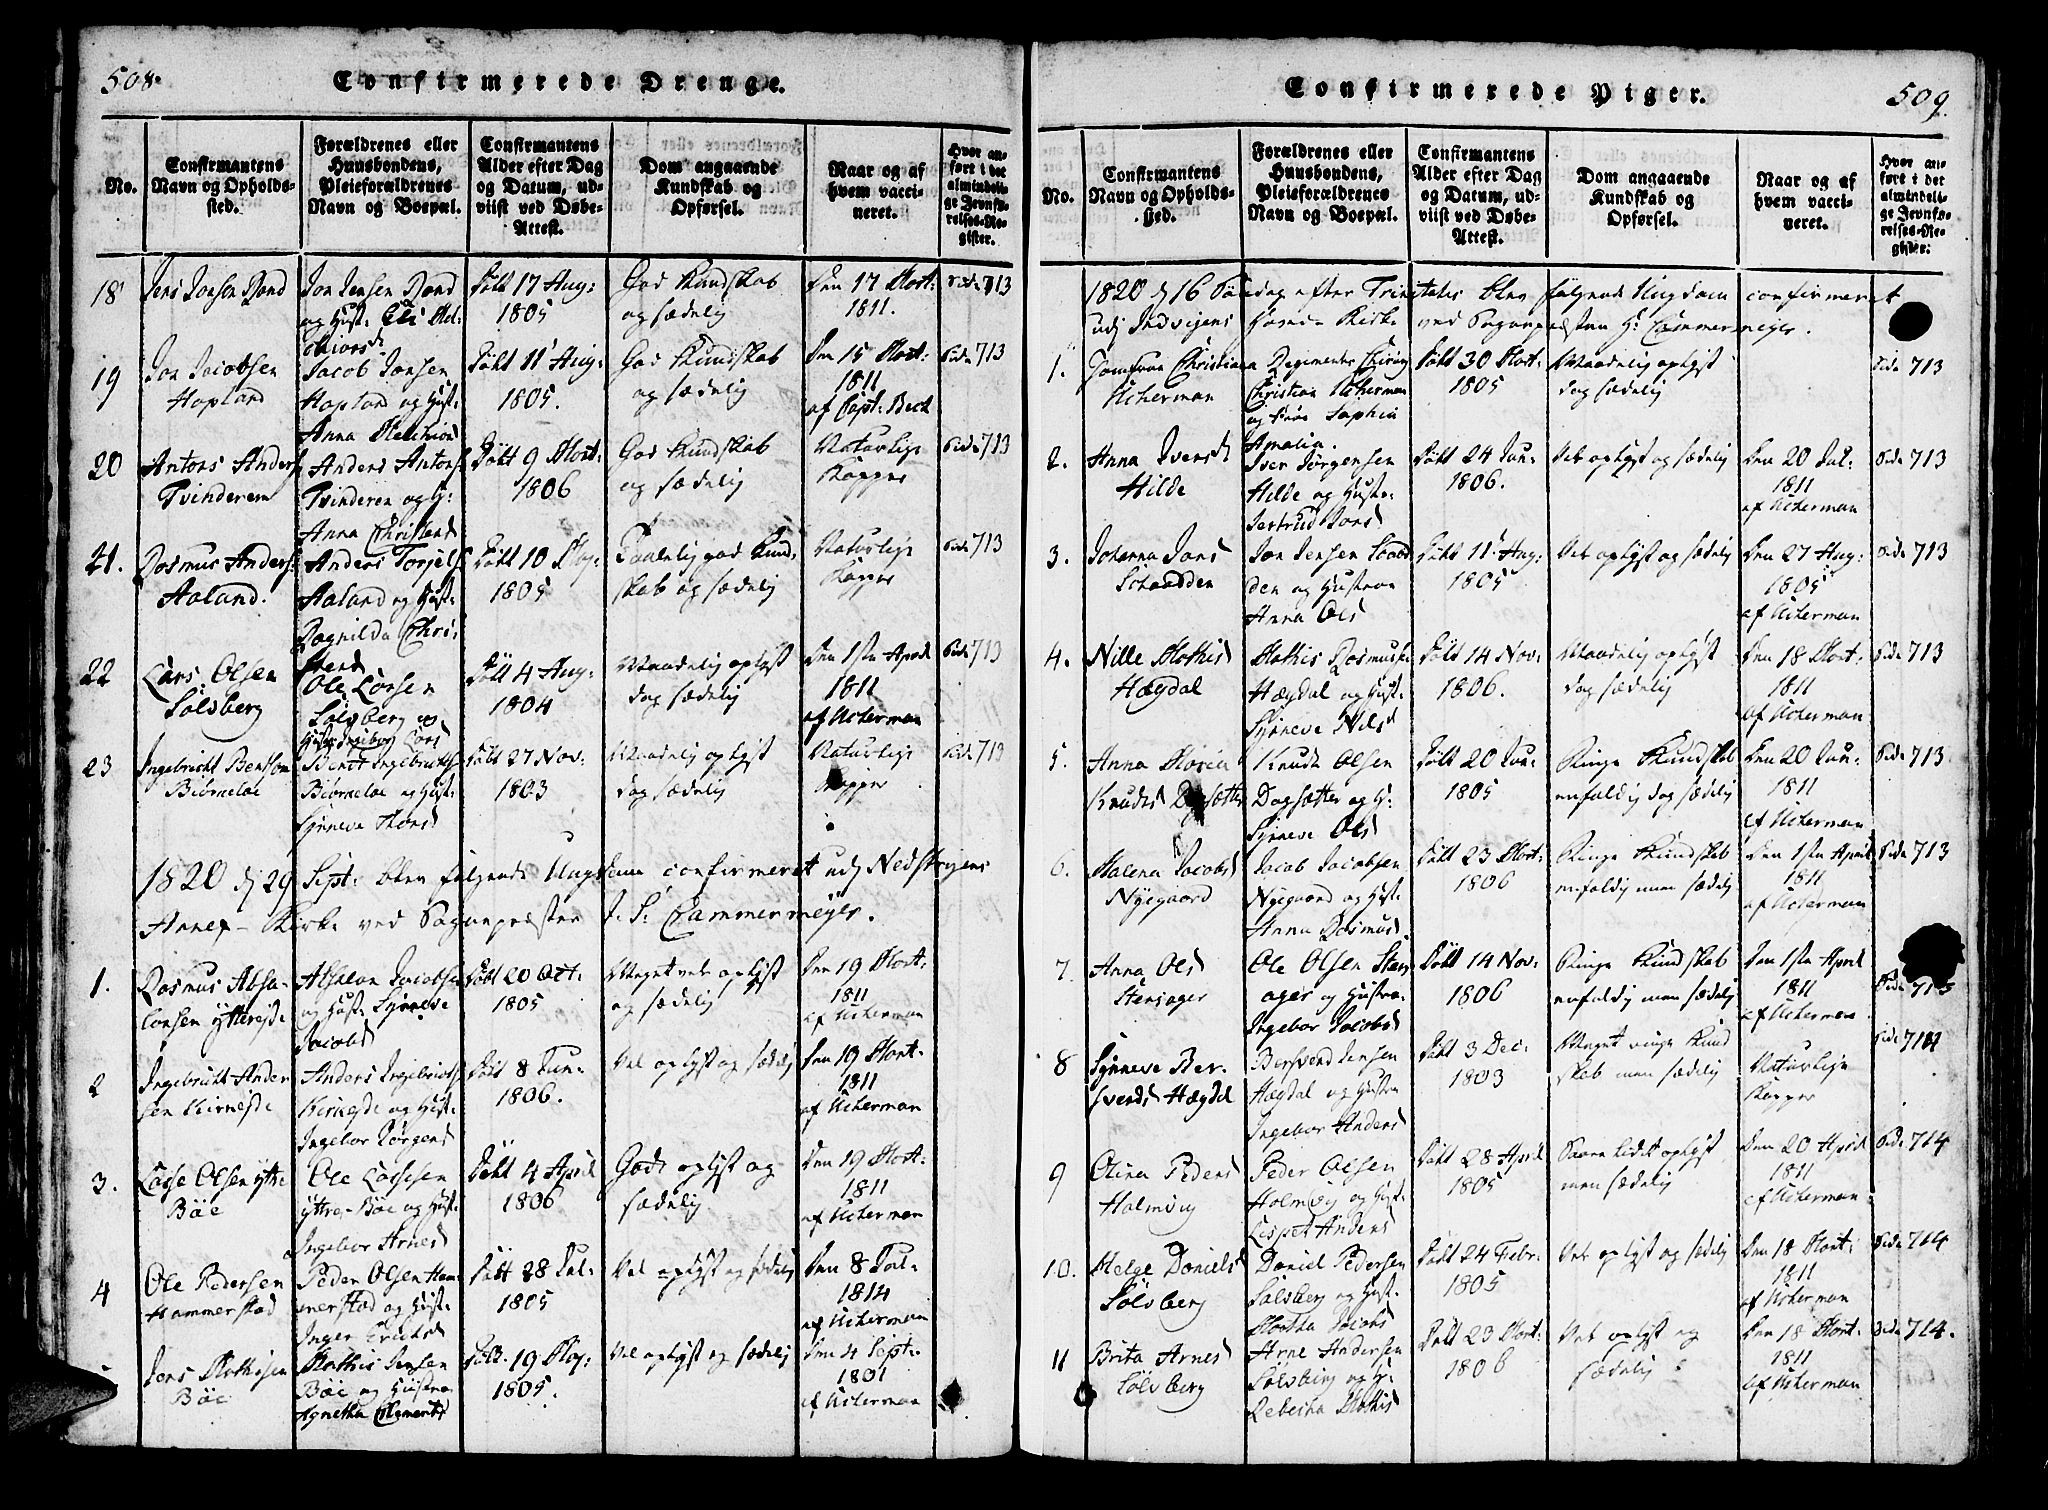 508.
Confirmerede Drenge.
No.
Confirmantens
Navn og Opholds-
sted.
Forældrenes eller
Huusbondens,
Pleieforældrenes
Navn og Boepæl.
Confirmantens
Alder efter Dag
og Datum, ud-
viist ved Døbe-
Attest.
Dom angaaende
Kundskab og
Opførsel.
Naar og af
hvem vacci-
neret.
Hvor an-
ført i det
almindeli-
ge Jevnfø-
relses-Re-
gister.
18
Jens Jonsen
Jon Jensen
og Hust:
Døbt 17 Aug:
1805
God Kundskab
og sædelig
Den 17 Mart:
1811.
Side 713
19
Jon Jacobsen
Hopland
Jacob Jonsen
Hopland og Hust:
Anna
Døbt 11 Aug:
1805.
God Kundskab
og sædelig
Den 15 Mart:
1811
af Capt: Beck
Side 713
20
Antons Anders
Tvinderem
Anders Antons
Tvinderen og H:
Anna Christens
Døbt 9 Mart:
1806
God Kundskab
og sædelig
Naturlige
Kopper
Side 713
21.
Rasmus Anders:
Aaland.
Anders
Aaland og Hust:
Ragnilda Chri-
stens
Døbt 10 Maj:
1805
god Kund-
skab og sædelig
Naturlige
Kopper
Side 713
22
Lars Olsen
Solsberg
Ole Larsen
Solsberg og
Hustr. Ingebor Lars
Døbt 4 Aug:
1804
Maadelig oplyst
dog sædelig
Den 1ste April
1811
af Ackerman
Side 713
23
Ingebricht Bentson
Biørneloe
Bent Ingebrichts
Biørneloe og Hust:
Synneve Thors
Døbt 27 Nov:
1803
Maadelig oplyst
dog sædelig
Naturlige
Kopper
Side 713
1820 d 29 Sept: blev følgende Ungdom confirmeret udj Nedstryens
Annex-Kirke ved Sogneprester J. S. Cammermeyer.
1.
Rasmus Absa-
lonsen
Absalon Jacobsen
og Hust: Synneve
Jacobs
Døbt 20 Oct:
1805
Meget vel oplyst
og sædelig
Den 19 Mart:
1811
af Ackerman
2
Ingebricht Ander
sen
Anders Ingebrichts
og Hust:
Ingebor Jørgens
Døbt 8 Jun:
1806.
Vel oplyst og sædelig
Den 19 Mart:
1811
af Ackerman
3.
Lasse Olsen ytre
Bøe
Ole Lassesen
ytre-Bøe og Hust:
Ingebor Arnes
Døbt 4 April
1806
Godt oplyst og
sædelig
Den 19 Mart:
1811
af Ackerman
4
Ole Pedersen
Hammerstad
Peder Olsen Ham-
merstad og Hust:
Inger Erichs
Døbt 28 Jul:
1805
Vel oplyst og sædelig
Den 8 Jul:
1814
af Ackerman
Jens Mathisen
Bøe
Mathis Jensen
Bøe og Hustrue
Agnetha Clements
Døbt 19 Maj:
1805.
Vel oplyst og sædelig
Den 4 Sept:
1801
af Ackerman
Confirmerede Piger.
509.
No.
Confirmantens
Navn og Opholds-
sted.
Forældrenes eller
Huusbondens,
Pleieforældrenes
Navn og Boepæl.
Confirmantens
Alder efter Dag
og Datum, ud-
viist ved Døbe-
Attest.
Dom angaaende
Kundskab og
Opførsel.
Naar og af
hvem vacci-
neret.
Hvor an-
ført i det
almindeli-
ge Jevnfø-
relses-Re-
gister.
1820 d 16 Søndag efter Trinitatis blev følgende Ungdom confirmeret
udj Indvigens Hoved-Kirke ved Sognepresten Hr Cammermeyer.
1.
Jomfrue Christiana
Ackerman
Regiments Chirurg
Christian Ackerman
og Frue Sophia
Amalia.
Døbt 30 Mart:
1805
Maadelig oplyst
dog sædelig
Side 713
2.
Anna Ivers
Hilde
Iver Jørgensen
Hilde og Hustr:
Jertrud Jons
Døbt 24 Jun:
1806.
Vel oplyst og sædelig
Den 20 Jul:
1811
af Ackerman
Side 713
3.
Johanna Jons
Jon Jensen
den og Hustrue
Anna Ols
Døbt 11 Aug:
1805
Vel oplyst og sædelig
Den 27 Aug:
1805
af Ackerman
Side 713
4.
Nille Mathis
Hægdal
Mathis Rasmuss
Hægdal og Hust:
Synneve Nils
Døbt 14 Nov:
1806.
Maadelig oplyst
dog sædelig
Den 18 Mart:
1811
af Ackerman
Side 713
5.
Anna Maria
Knuds Dagsætter
Knud Olsen
Dagsætter og H:
Synneve Ols
Døbt 20 Jun:
1805
Ringe Kundskab
enfoldig dog sædelig
Den 20 Jun:
1811
af Ackerman
Side 713
6.
Malena Jacobs
Nygaard
Jacob Jacobsen
Nygaard og Hust:
Anna Rasmus
Døbt 23 Mart:
1806
Ringe Kundskab
enfoldig men sædelig
Den 1ste April
1811
af Ackerman
Side 713
7
Anna Ols
Stensager
Ole Olsen Stens
ager og Hustrue
Ingebor Jacobs
Døbt 14 Nov:
1806
Ringe Kundskab
enfoldig men sædelig
Den 1ste April
1811
af Ackerman
Side 713
8
Synneve Ber-
svends Hægdal
Bersvend Jensen
Hægdal og Hustrue
Ingebor Anders
Døbt 3 Dec:
1803
Meget ringe Kund
skab men sædelig
Naturlige
Kopper
Side 714
9
Olina Peders
Holmvig
Peder Olsen
Holmvig og Hust:
Lisspet Anders
Døbt 28 April
1805
oplyst
men sædelig
Den 20 April
1811
af Ackerman
Side 714
10.
Helge Daniels
Solsberg
Daniel Pedersen
Solsberg og Hust:
Martha Jacobs
Døbt 24 Febr:
1805
Vel oplyst og sædelig
Den 18 Mart:
1811
af Ackerman
Side 714
11
Brita Arnes
Solsberg
Arne Andersen
Solsberg og H:
Rebecha Mathis
Døbt 23 Mart:
1806
Vel oplyst og
sædelig
Den 18 Mart:
1811
af Ackerman
Side 714.